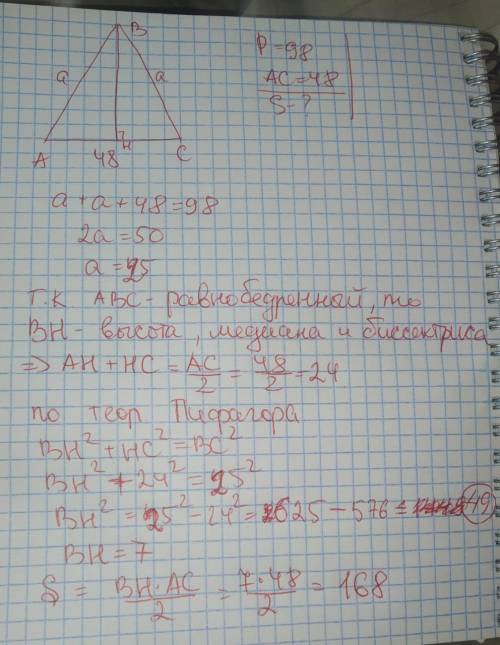 B
P = 98
a
a
AC = 48
S - ?
H
A
48
C
a + a + 48 = 98
2a = 50
a = 25
т.к ABC - равнобедренный, то
BH - высота, медиана и биссектриса
=> AH + HC = AC/2 = 48/2 = 24
по теор Пифагора
BH² + HC² = BC²
BH² + 24² = 25²
BH² = 25² - 24² = 625 - 576 = 49
BH = 7
S = BH·AC/2 = 7·48/2 = 168